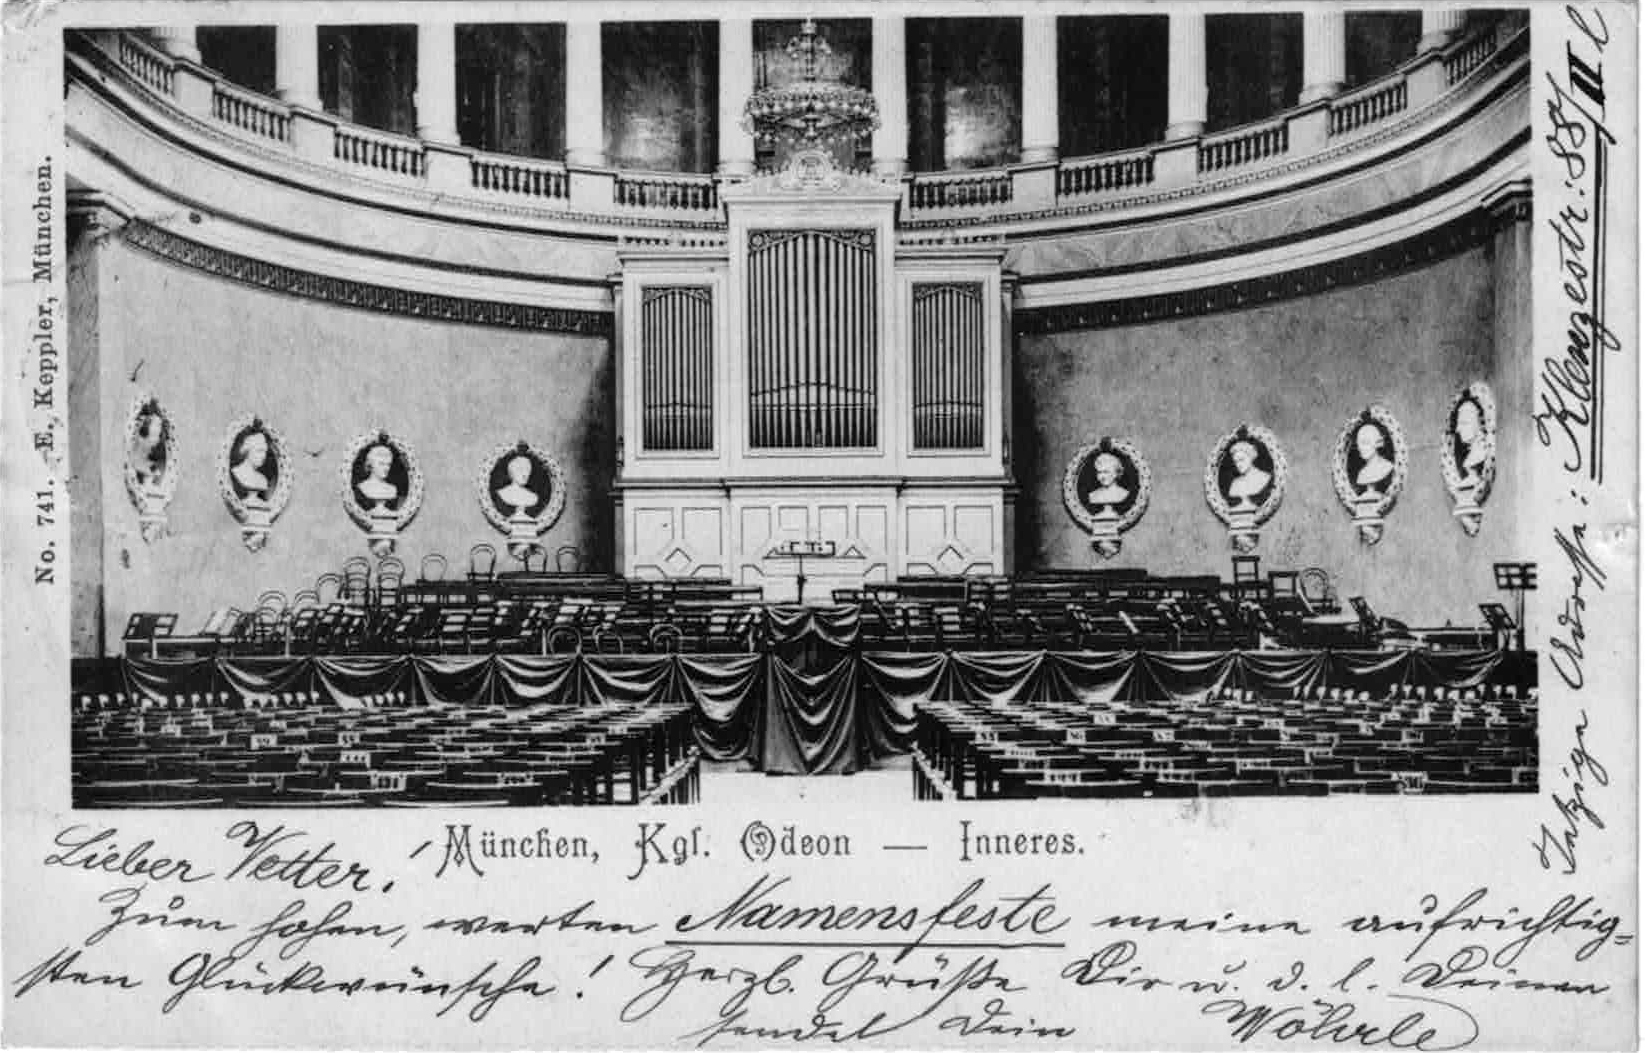 No. 741. E. Keppler, München.
München, Kgl. Odeon — Inneres.
Lieber Vetter!
Zum hohen, werten Namensfeste meine aufrichtig=
sten Glückwünsche! Herzl. Grüße Dir u. d. l. Deinen
sendet Dein Wöhrle
Jetzige Adresse: Klenzestr: 88/II l